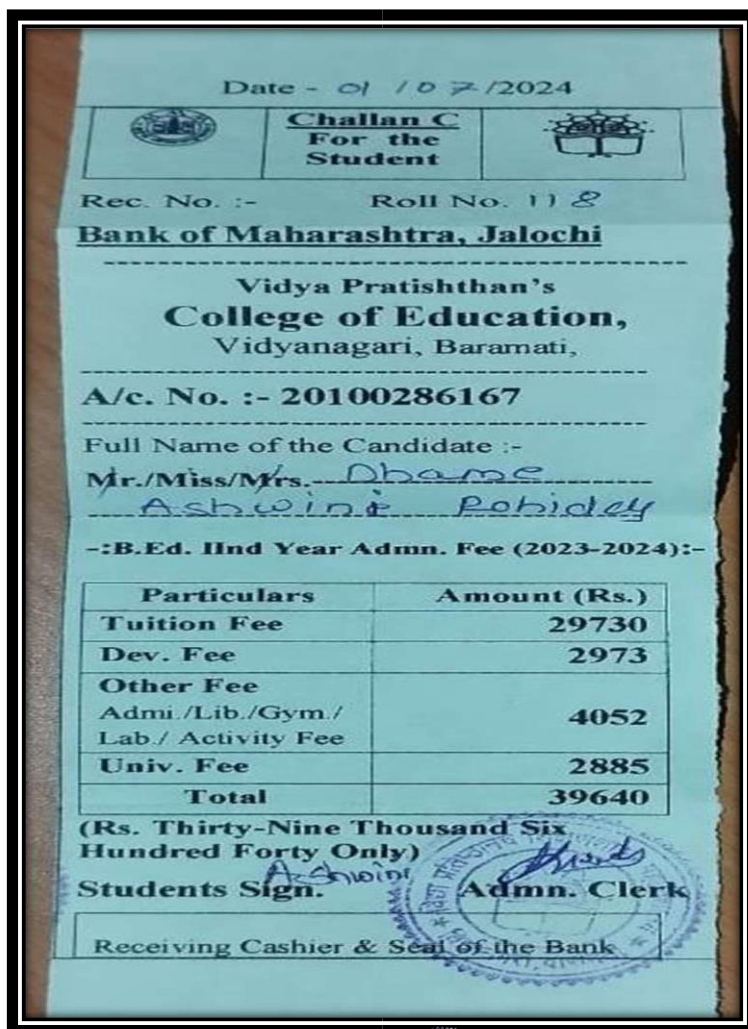 Date - 01 / 07 /2024
Challan C
For the
Student
Rec. No. :- Roll No. 118
Bank of Maharashtra, Jalochi
Vidya Pratishthan's
College of Education,
Vidyanagari, Baramati,
A/c. No. :- 20100286167
Full Name of the Candidate :-
Mr./Miss/Mrs. Dhame
Ashwini
-:B.Ed. IInd Year Admn. Fee (2023-2024):-
Particulars Amount (Rs.)
Tuition Fee 29730
Dev. Fee 2973
Other Fee
Admi./Lib./Gym./
Lab./ Activity Fee 4052
Univ. Fee 2885
Total 39640
(Rs. Thirty-Nine Thousand Six
Hundred Forty Only)
Ashwini
Students Sign. Admn. Clerk
Receiving Cashier & Seal of the Bank